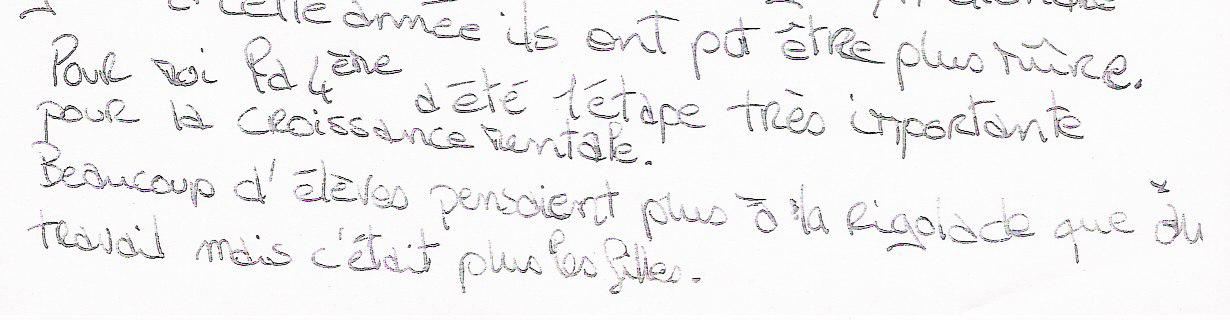 cette année ils ont pu être plus mûre.
Pour moi la 4ème a été l'étape très importante
pour la croissance mentale.
Beaucoup d'élèves pensaient plus à la rigolade que au
travail mais c'était plus les filles.